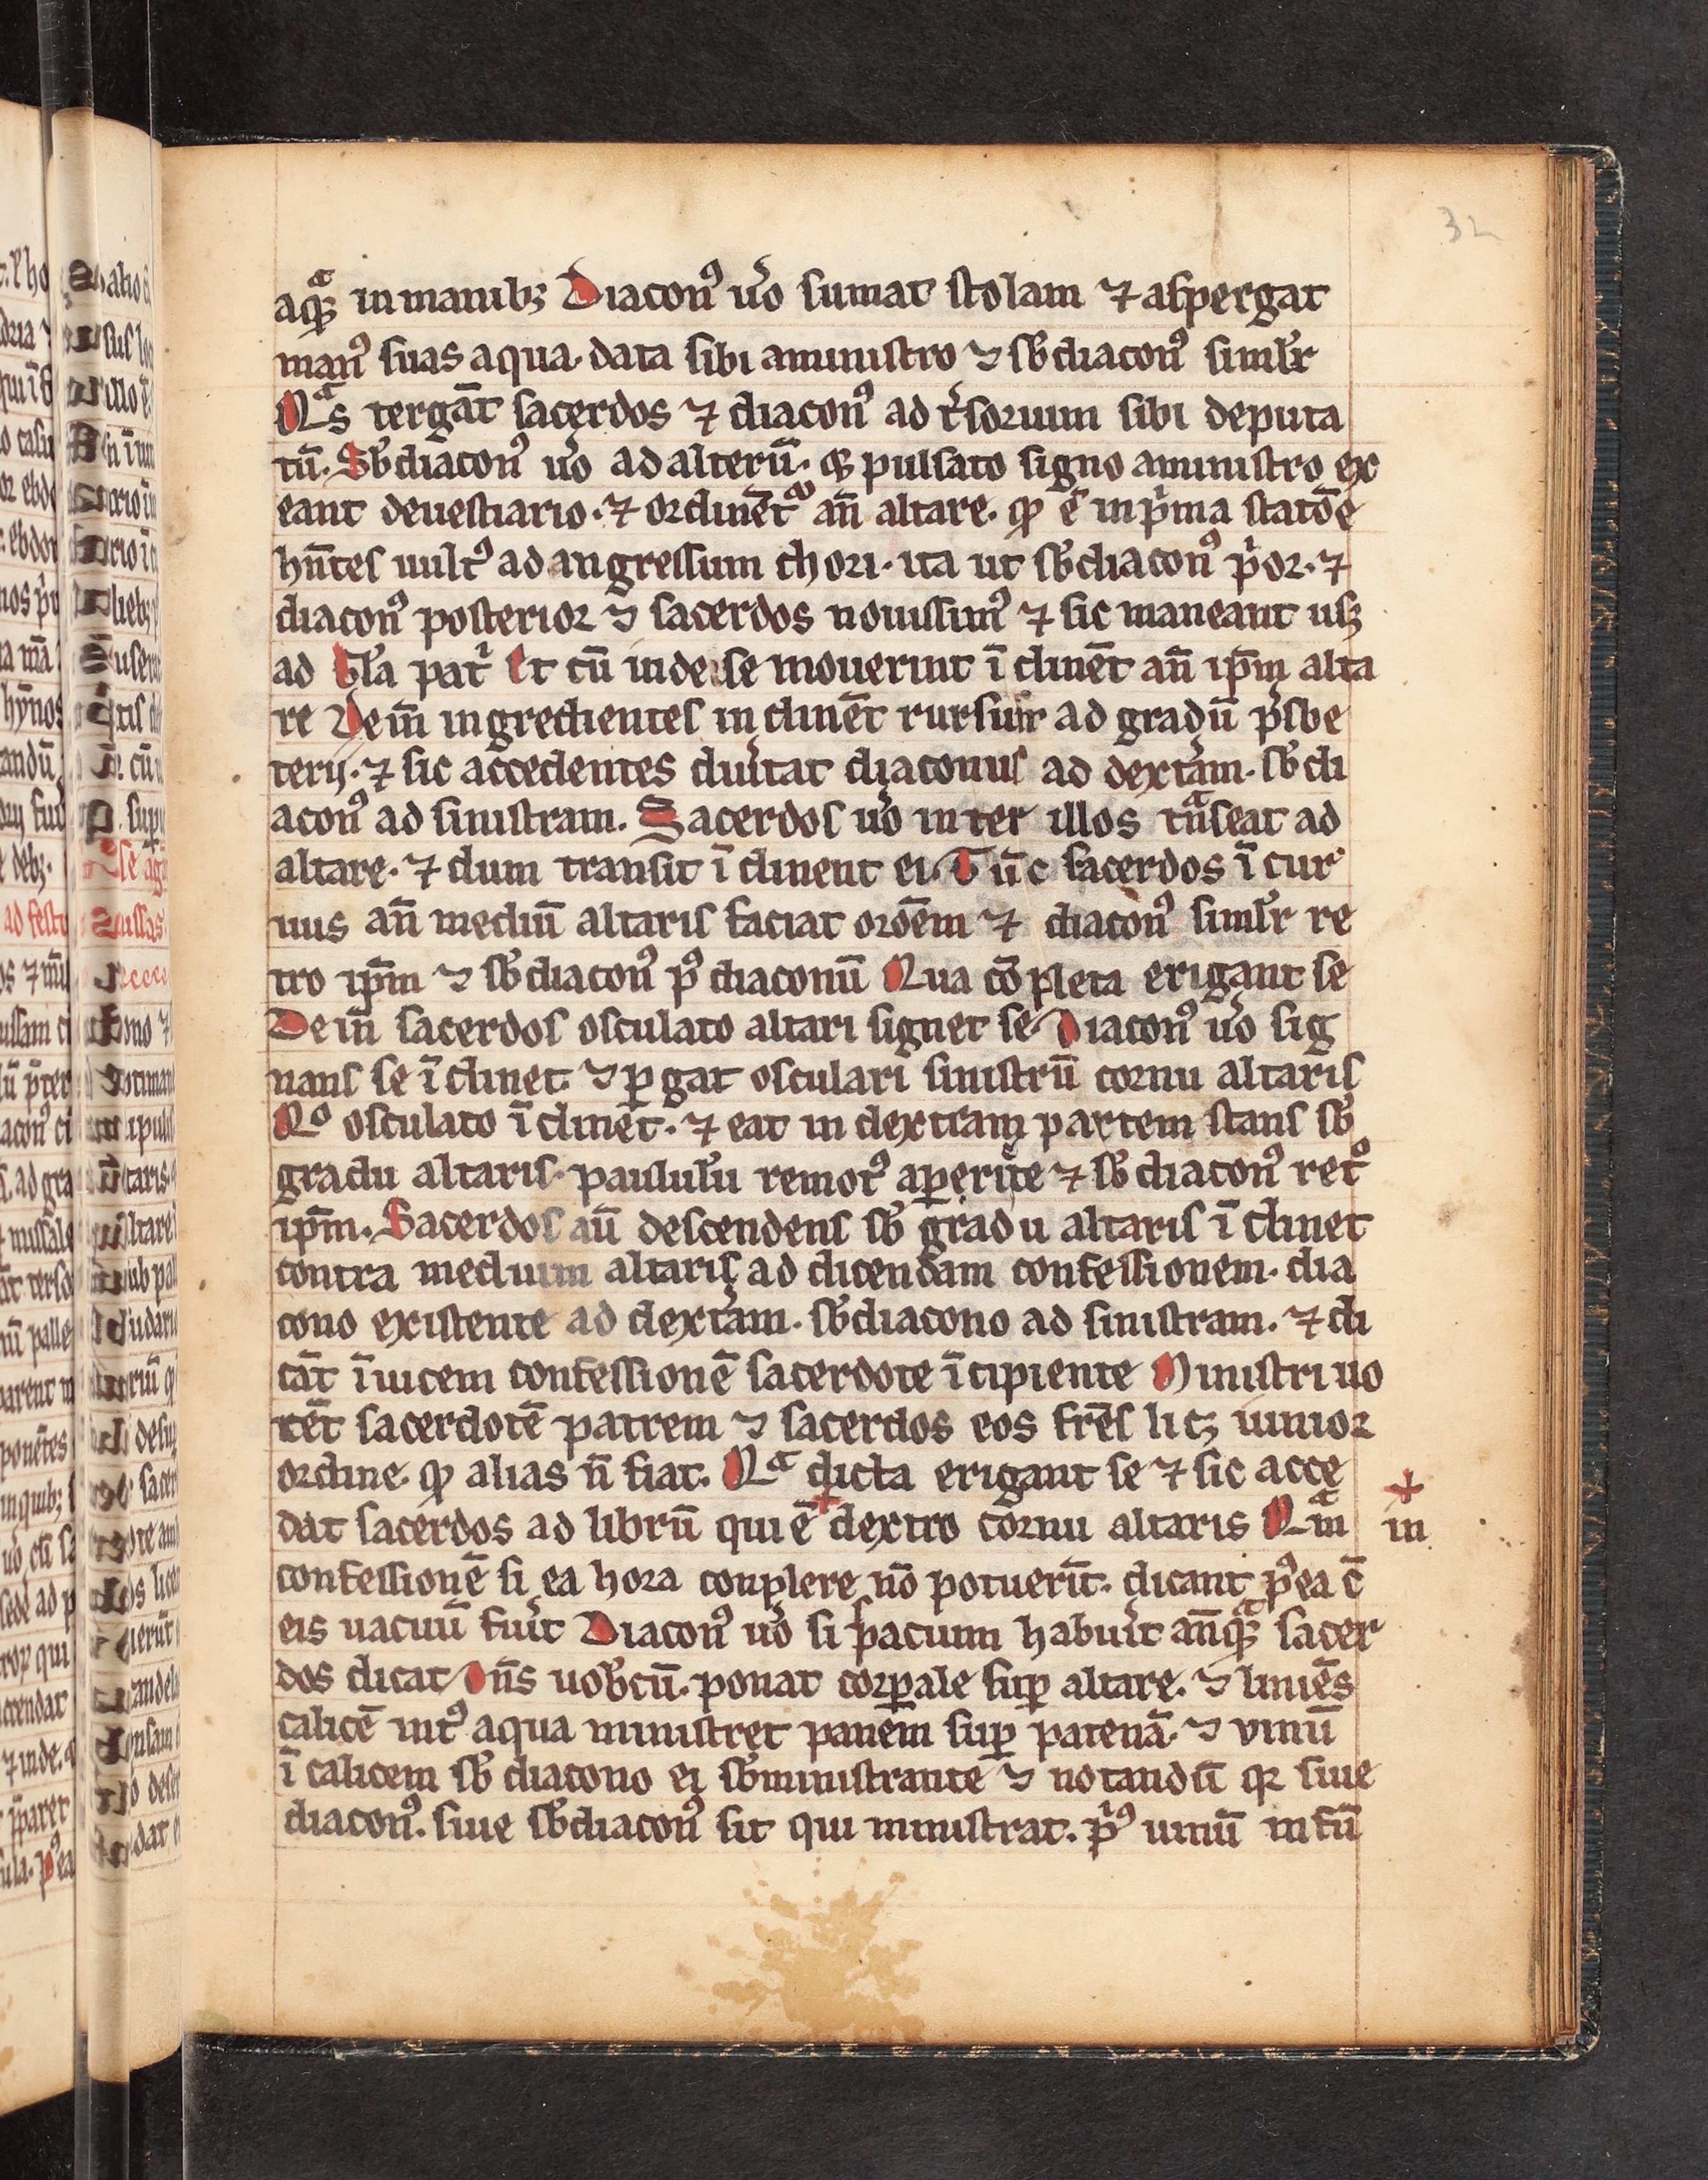 32
aqͣꝫ in manibꝫ Diaconꝰ uͦo sumat stolam ⁊ aspergat
manꝰ suas aqua. data sibi aministro ⁊ sb̄diaconꝰ simil̄r
Qͣs tergāt sacerdos ⁊ diaconꝰ ad t̾soruum sibi deputa
tū. Sb̄diaconꝰ uͦo ad alterū. qꝫ pulsato signo aministro ex
eant deuestiario. ⁊ ordinēt᷑ an̄ altare. qͥ ē inp̾ma statōe
hn̄tes uultꝰ ad angressum chori. ita ut sb̄diaconꝰ p̾or. ⁊
diaconꝰ posterior ⁊ sacerdos nouissimꝰ ⁊ sic maneant usꝫ
ad Gl̄a pat̾ Et cū inde se mouerint ī clinēt an̄ ip̄m alta
re Dein̄ ingredientes inclinēt rursum ad gradū p̾sbe
terij. ⁊ sic accedentes diu̾tat diaconus ad dext̾am. sb̄di
aconꝰ ad sinistram. Sacerdos uͦo inter illos tͣnseat ad
altare. ⁊ dum transit ī clinent ei. Tūc sacerdos ī cur
uus an̄ mediū altaris faciat orōem ⁊ diaconꝰ simil̄r re
tro ip̄m ⁊ sb̄diaconꝰ pꝰ diaconū Qua cōpleta erigant se
Dein̄ sacerdos osculato altari signet se Diaconꝰ uͦo sig
nans se ī clinet ⁊ ꝑgat osculari sinistrū cornu altaris
Qͦ osculato ī clinet. ⁊ eat in dextram partem stans sb̄
gradu altaris. paulul̄u remotꝰ apɇrite ⁊ sb̄diaconꝰ retͦ
ip̄m. Sacerdos aū descendens sb̄ gradu altaris ī clinet
contra medium altaris ad dicendam confessionem. dia
cono existente ad dext̾am. sb̄diacono ad sinistram. ⁊ di
cāt īuicem confessionē sacerdote īcipiente Ministri uo
cēt sacerdotē patrem ⁊ sacerdos eos fr̄es licꝫ iunior
ordine. qͥ alias n̄ fiat. Qͣ dicta erigant se ⁊ sic acce
dat sacerdos ad librū qui ē + dextro cornu altaris Qͣm + in
confessionē si ea hora conplere nō potuerīt. dicant pꝰea c̄
eis uacuū fu̾it Diaconꝰ uͦo si spacium habu̾it an̄qͣꝫ sacer
dos dicat Dn̄s uob̄cū. ponat corꝑale suꝑ altare. ⁊ liniēs
calicē intꝰ aqua ministret panem suꝑ patenā. ⁊ vinū
ī calicem sb̄diacono ei sb̄ministrante ⁊ notandū qꝛ siue
diaconꝰ. siue sb̄diaconꝰ sit qui ministrat. p̾ꝰ uinū infū